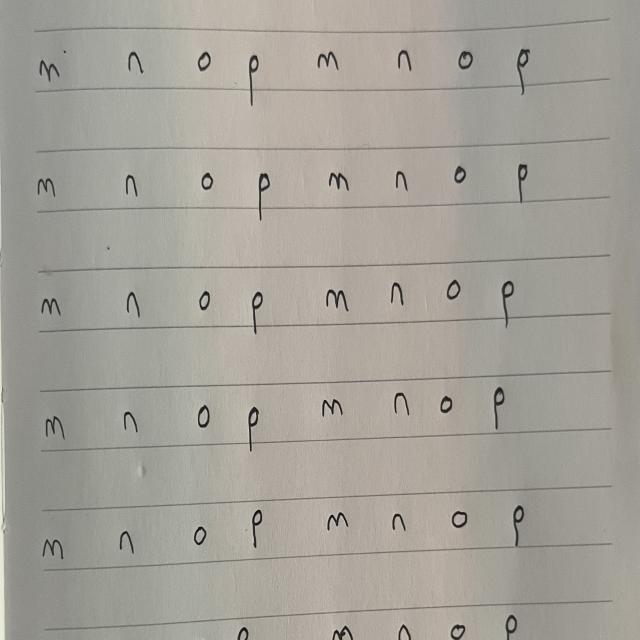 m n o p m n o p
m n o p m n o p
m n o p m n o p
m n o p m n o p
m n o p m n o p
p m n o p